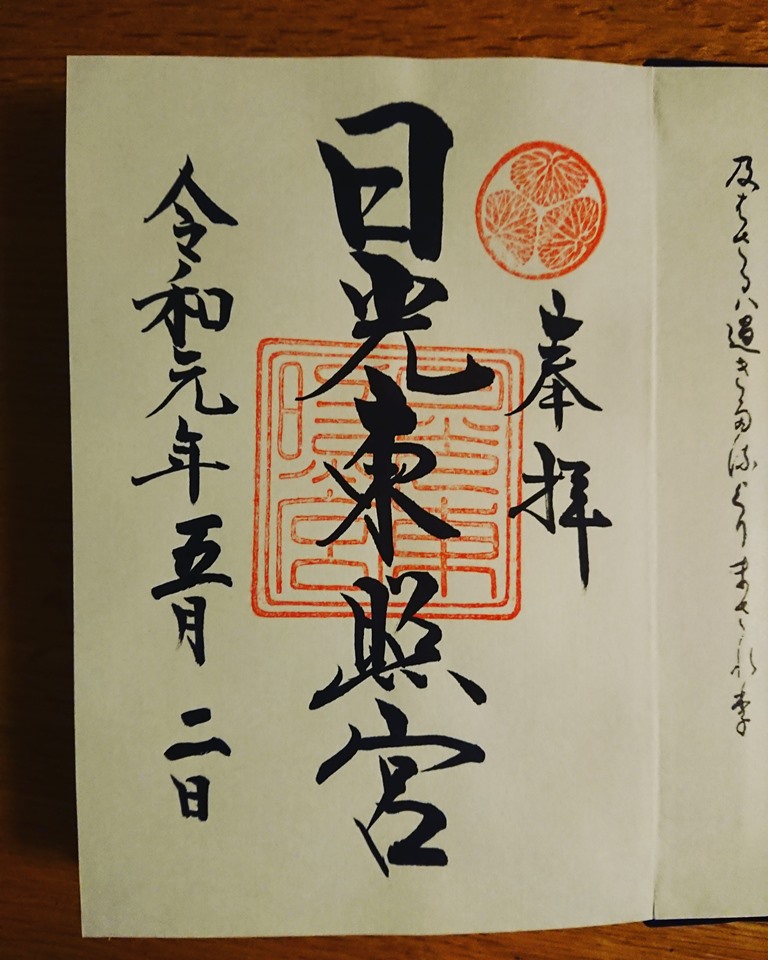 及はさるハ過きたるよりまされり
奉拝
日光東照宮
日光東照宮
令和元年五月二日